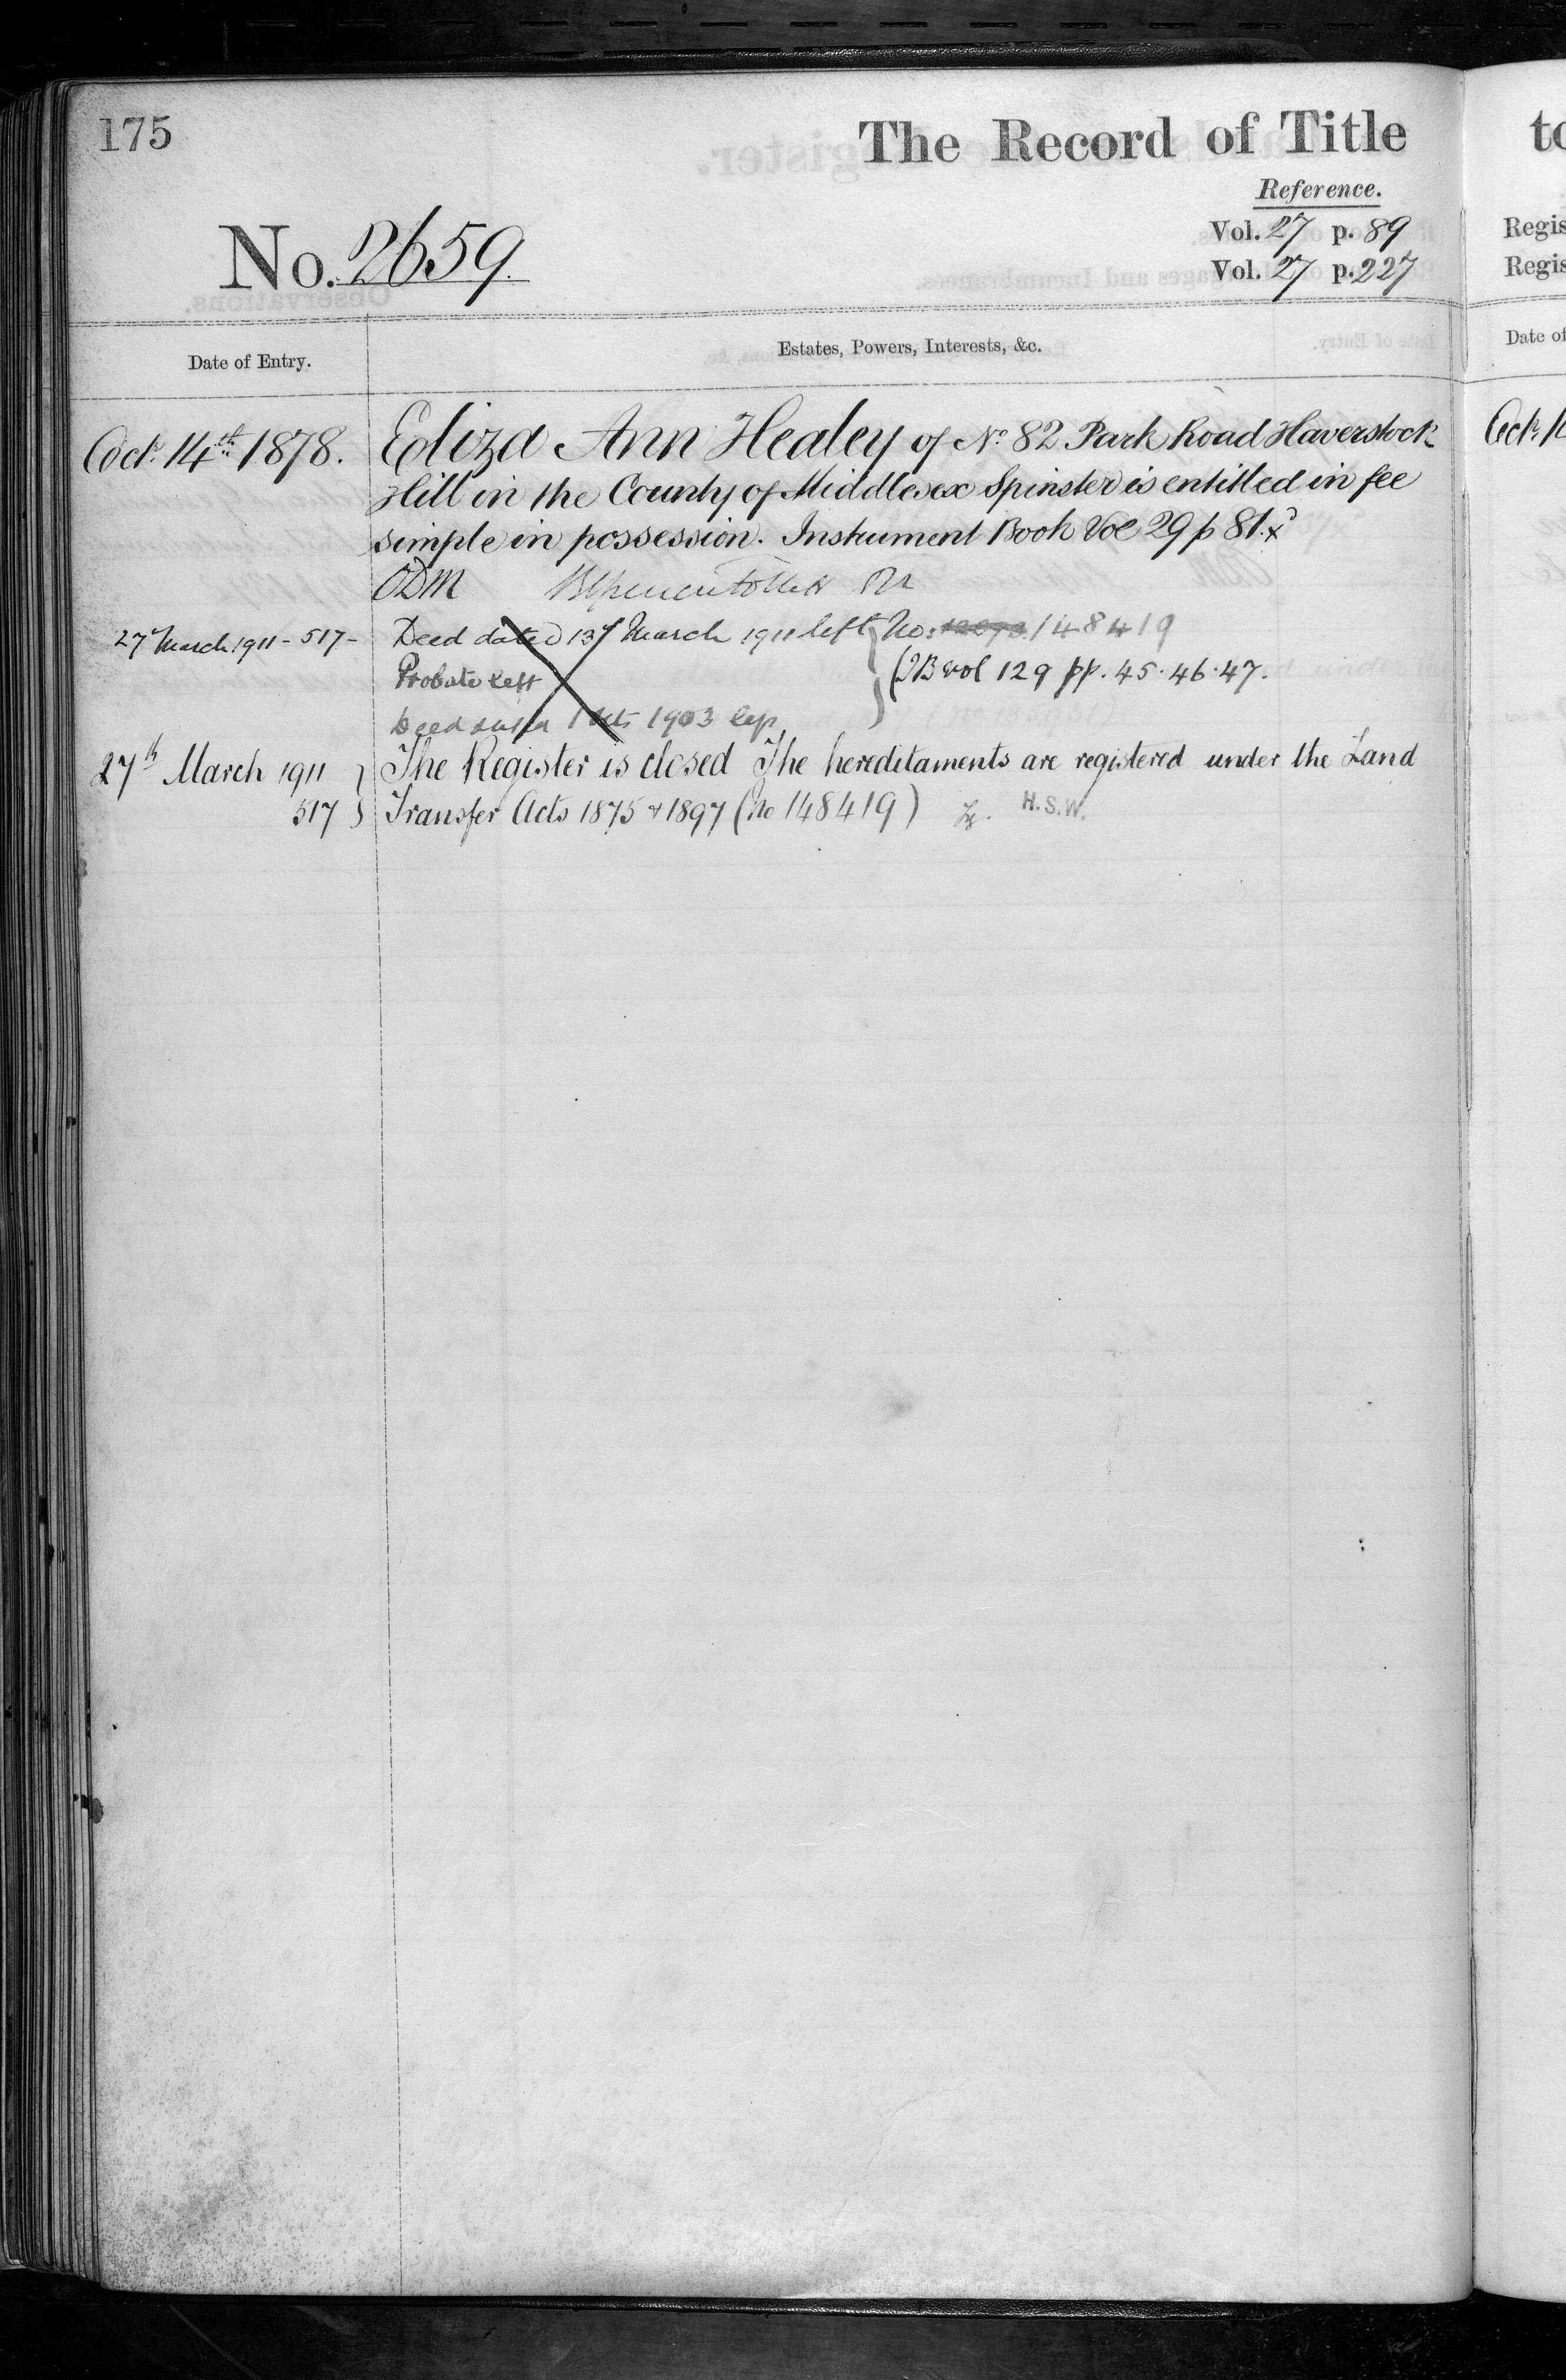 175
The Record of Title
Reference.
No. 2659.
Vol. 27 p. 89
Vol. 27 p. 227
Date of Entry.
Estates, Powers, Interests, &c.
Oct. 14th 1878.
Eliza Ann Healey of No. 82 Park Road Haverstock
Hill in the County of Middlesex Spinster is entitled in fee
simple in possession. Instrument Book Vol 29 p 81.
ODM
27 March 1911 - 517 -
Deed dated 13 March 1911 left } No: 148419
Probate left (IB vol 129 pp. 45. 46. 47.
Deed 1903
27th March 1911 }
517 }
The Register is closed The hereditaments are registered under the Land
Transfer Acts 1875 & 1897 (No 148419) H.S.W.
to
Regis
Regis
Date of
Oct. 1